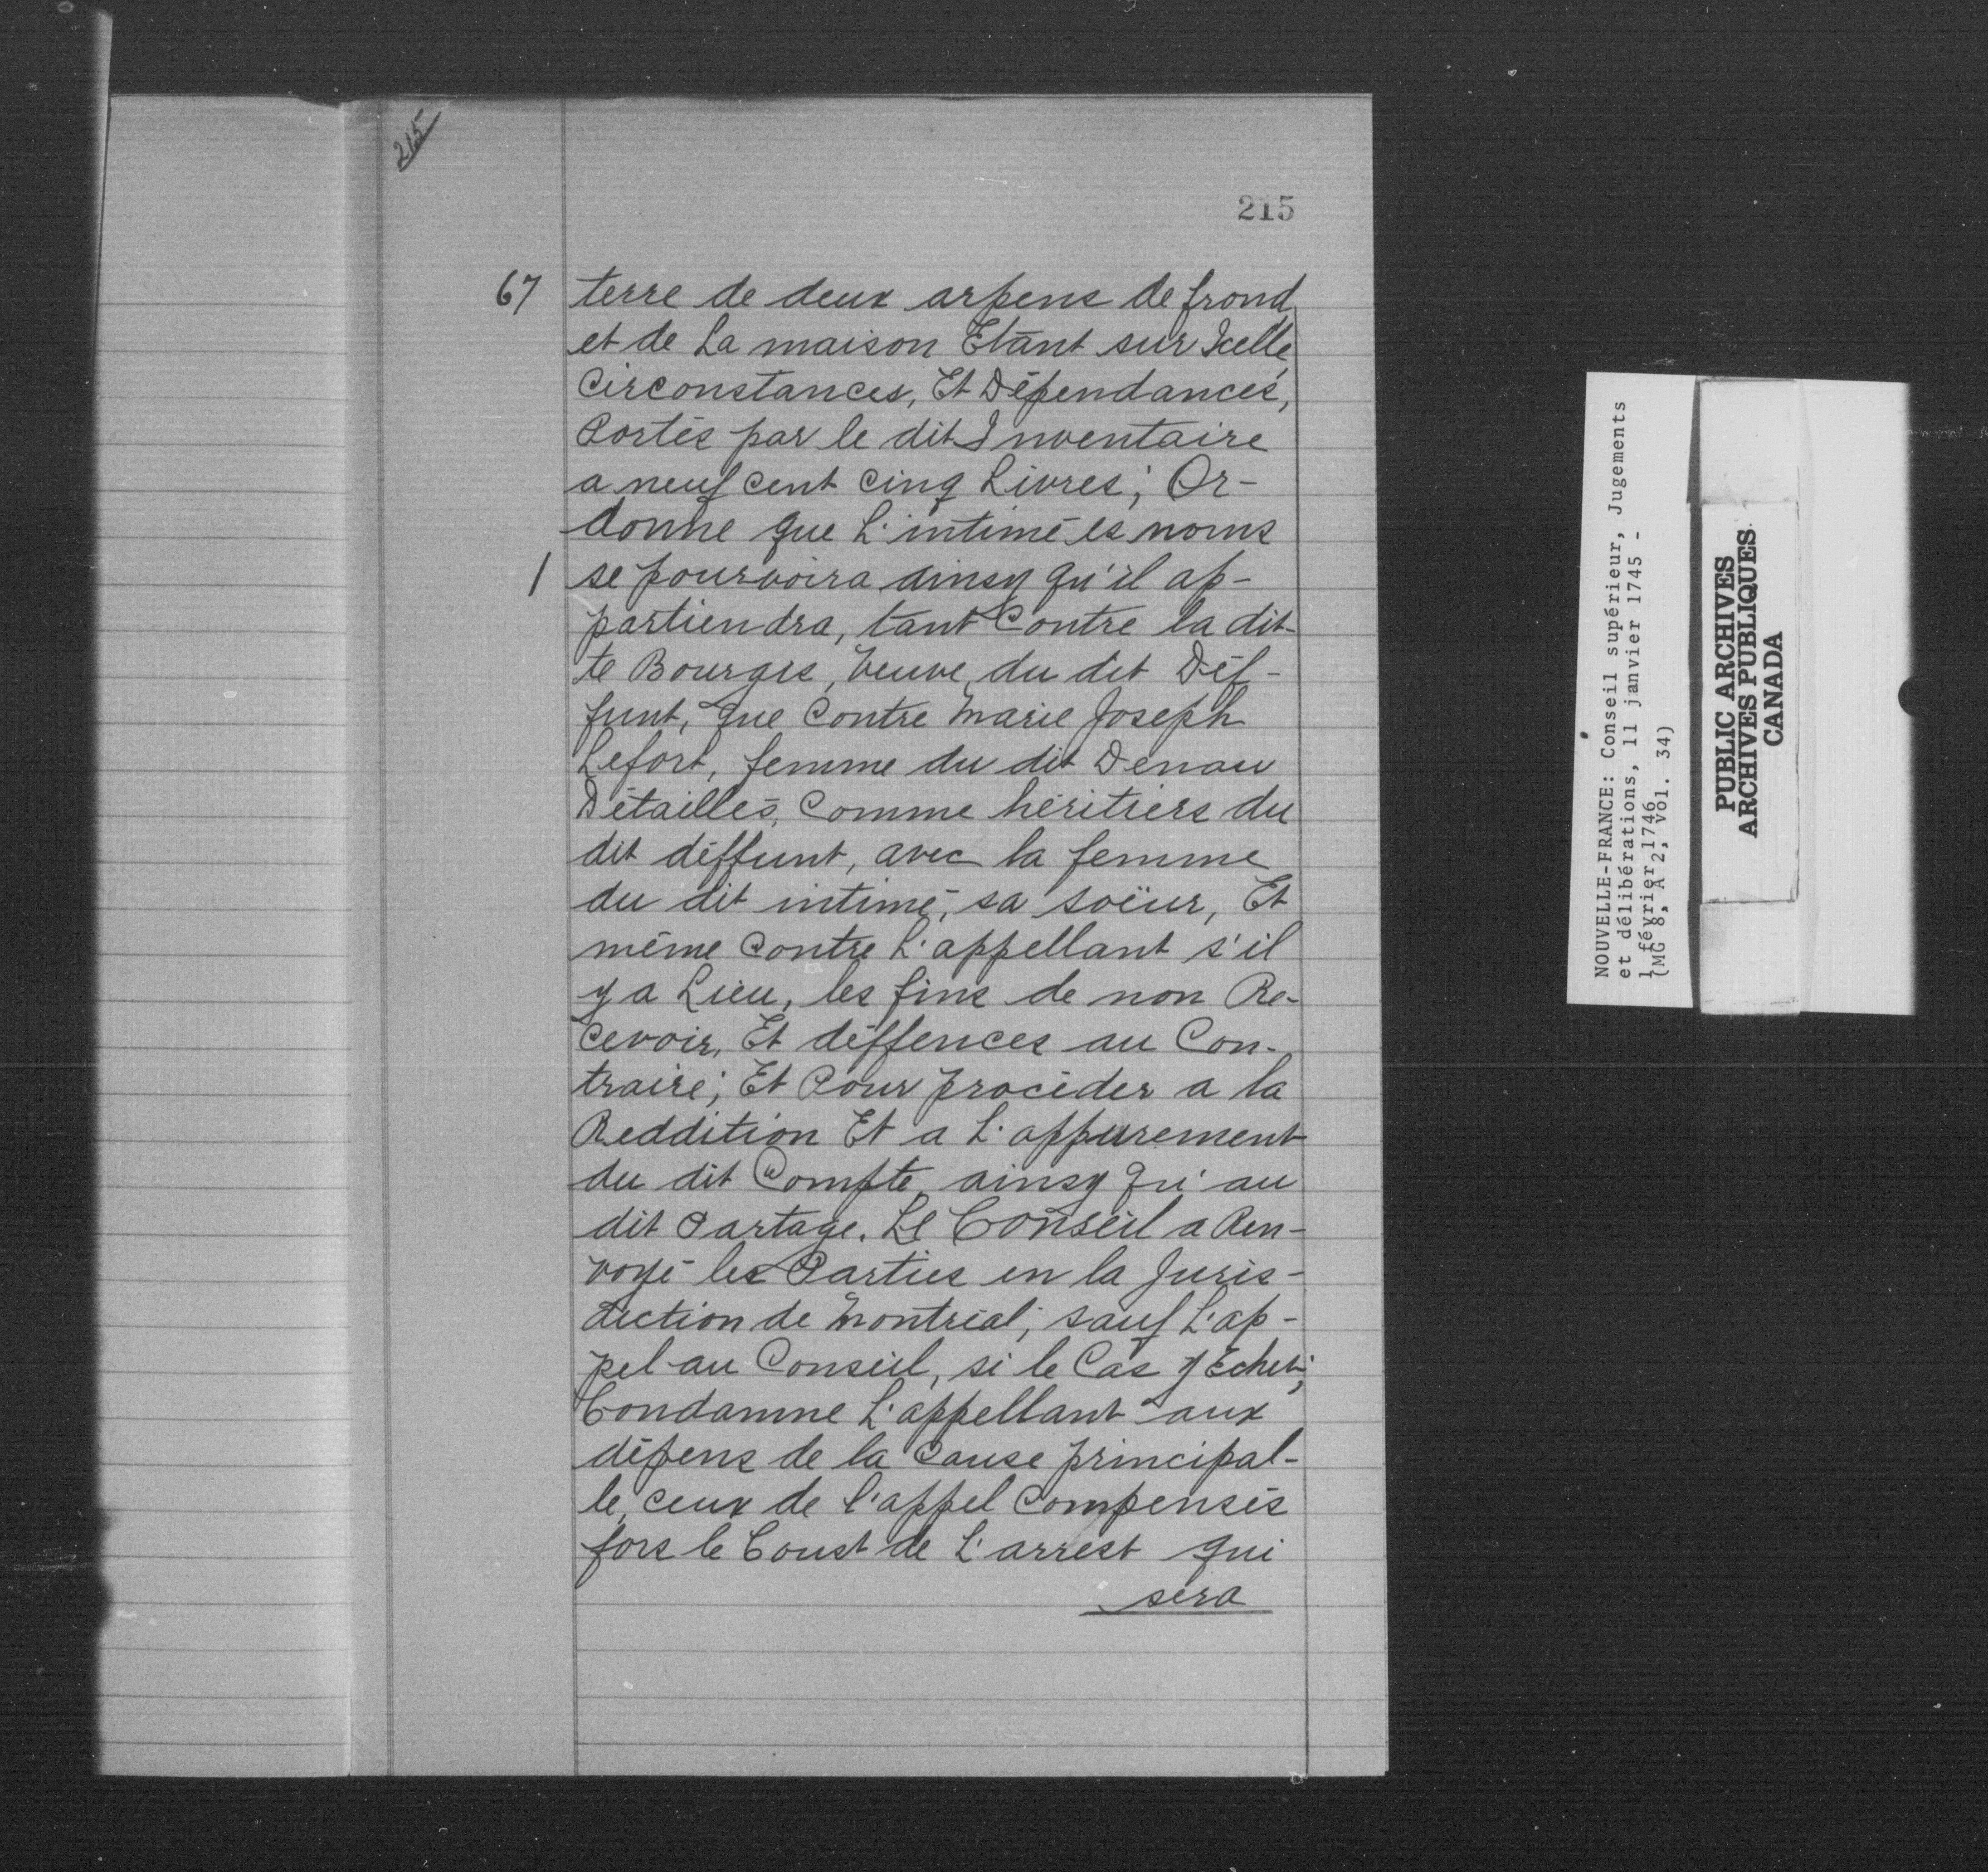 215
215
67 terre de deux arpens de frond
et de La maison Etant sur Icelle,
Circonstances, Et Dépendances,
Portés par le dit Inventaire
a neuf cent cinq Livres; Or-
donne que L'intimé es noms
/ se pourvoira ainsy qu'il ap-
partiendra, tant Contre la dit-
te Bourgis, Veuve, du dit Déf-
funt, que Contre Marie Joseph
Lefort, femme du dit Denau
Détaillés, Comme héritiers du
dit déffunt, avec la femme
du dit intimé, sa soëur, Et
même Contre L'appellant s'il
y a Lieu, les fins de non Re-
cevoir, Et déffences au Con-
traire; Et Pour procéder a la
Reddition Et a L'appurement
du dit Compte, ainsy qu'au
dit Partage. Le Conseil a Ren-
voyé les Parties en la Juris-
diction de Montréal; sauf L'ap-
pel au Conseil, si le Cas y Echet;
Condamne L'appellant aux
dépens de la Cause principal-
le, ceux de l'appel Compensés
fors le Coust de L'arrest qui
sera
NOUVELLE-FRANCE: Conseil supérieur, Jugements
et délibérations, 11 janvier 1745 -
1 février 1746
(MG 8, A 2, vol. 34)
PUBLIC ARCHIVES
ARCHIVES PUBLIQUES
CANADA